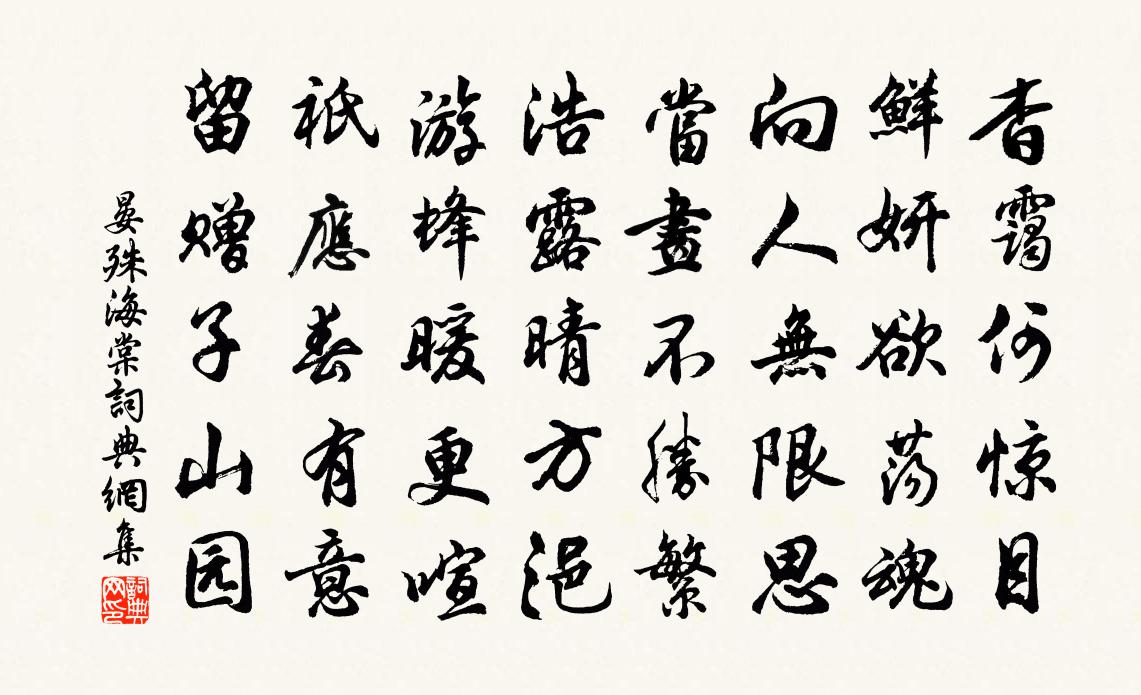 香靄何惊目
鮮妍欲荡魂
向人無限思
當晝不勝繁
浩露晴方浥
游蜂暖更喧
衹應春有意
留赠子山园
晏殊海棠詞典網集
詞典网印